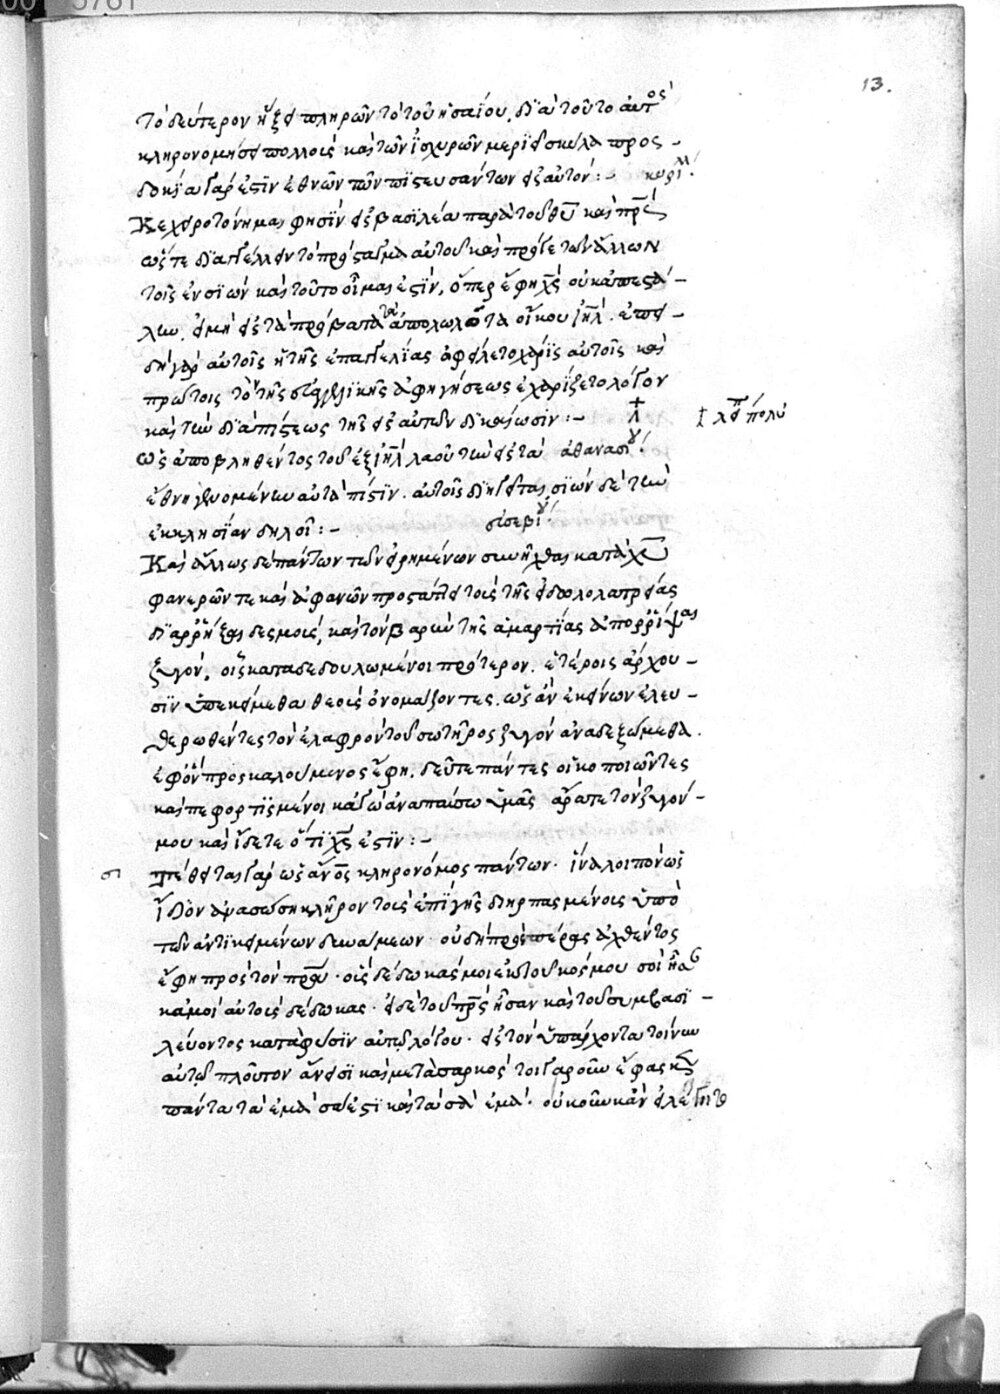 13.
τὸ δεύτερον ἥξει πληρῶν τὸ τοῦ ἠσαΐου. διὰ τοῦτο αὐτὸς
κληρονομήσει πολλοὺς καὶ τῶν ἰσχυρῶν μεριεῖ σκῦλα προς-
δοκία γάρ ἐστιν ἐθνῶν τῶν πιστευσάντων εἰς αὐτόν :-
Κεχειροτόνημαι φησὶν εἰς βασιλέα παρὰ τοῦ θυ καὶ πρς
ὥστε διαγγέλλειν τὸ πρόσταγμα αὐτοῦ καὶ πρό γε τῶν ἄλλων
τοῖς ἐν σιὼν καὶ τοῦτο οἶμαι ἐστίν, ὅπερ ἔφη χς οὐκ ἀπεστά-
λην εἰ μὴ εἰς τὰ πρόβατα τὰ ἀπολωλότα οἴκου ιηλ. ἐπει-
δὴ γὰρ αὐτοῖς ἡ τῆς ἐπαγγελίας ὠφείλετο χάρις αὐτοῖς καὶ
πρώτοις τὸν τῆς εὐαγγελικῆς ἀφηγήσεως ἐχαρίζετο λόγον
καὶ τὴν διὰ πίστεως τῆς εἰς αὐτὸν δικαίωσιν :-
ὡς ἀποβληθέντος τοῦ ἐξ ιηλ λαοῦ τῶν εἰς τὰ ἀθανασίου
ἔθνη γενομένων αὐτὰ πίστιν. αὐτοῖς διηγεῖται, σιὼν δὲ τὴν
ἐκκλησίαν δηλοῖ :- εὐσεβίου
Καὶ ἄλλως δὲ πάντων τῶν εἰρημένων συνῆχθαι κατὰ χυ
φανερῶν τε καὶ ἀφανῶν προστάττει τοὺς τῆς εἰδωλολατρείας
διαρρῆξαι δεσμούς, καὶ τὸν βαρὺν τῆς ἁμαρτίας ἀπορρίψαι
ζυγόν, οἱ καταδεδουλωμένοι πρότερον. ἑτέροις ἄρχου-
σιν ὑπεκείμεθα θεοὺς ὀνομάζοντες. ὡς ἂν ἐκείνων ἐλευ-
θερωθέντες τὸν ἐλαφρὸν τοῦ σωτῆρος ζυγὸν ἀναδεξώμεθα.
ἐφ' ὃν προσκαλούμενος ἔφη. δεῦτε πάντες οἱ κοπιῶντες
καὶ πεφορτισμένοι κἀγὼ ἀναπαύσω ὑμᾶς ἄρατε τὸν ζυγόν-
μου καὶ ἴδετε ὅτι χς ἐστιν :-
τέθειται γὰρ ὡς ανος κληρονόμος πάντων. ἵνα λοιπὸν ὡς
ἴδιον ἀνασώσῃ κλῆρον τοὺς ἐπὶ γῆς διηρπασμένους ὑπὸ
τῶν ἀντικειμένων δυνάμεων. οὗ δὴ πρὸς πέρας ἀχθέντος
ἔφη πρὸς τὸν πρα. οὓς δέδωκάς μοι ἐκ τοῦ κόσμου σοὶ ἦσαν
κἀμοὶ αὐτοὺς δέδωκας. εἰ δὲ τοῦ πρς ἦσαν καὶ τοῦ συμβασι-
λεύοντος κατὰ φύσιν αὐτῷ λόγου. εἰς τὸν ὑπάρχοντα τοίνυν
αὐτῷ πλοῦτον ἄνεισι καὶ μετὰ σαρκός τοιγαροῦν ἔφασκεν
πάντα τὰ ἐμὰ σά ἐστι καὶ τὰ σὰ ἐμά. οὐκοῦν κἂν εἰ λέγοιτο